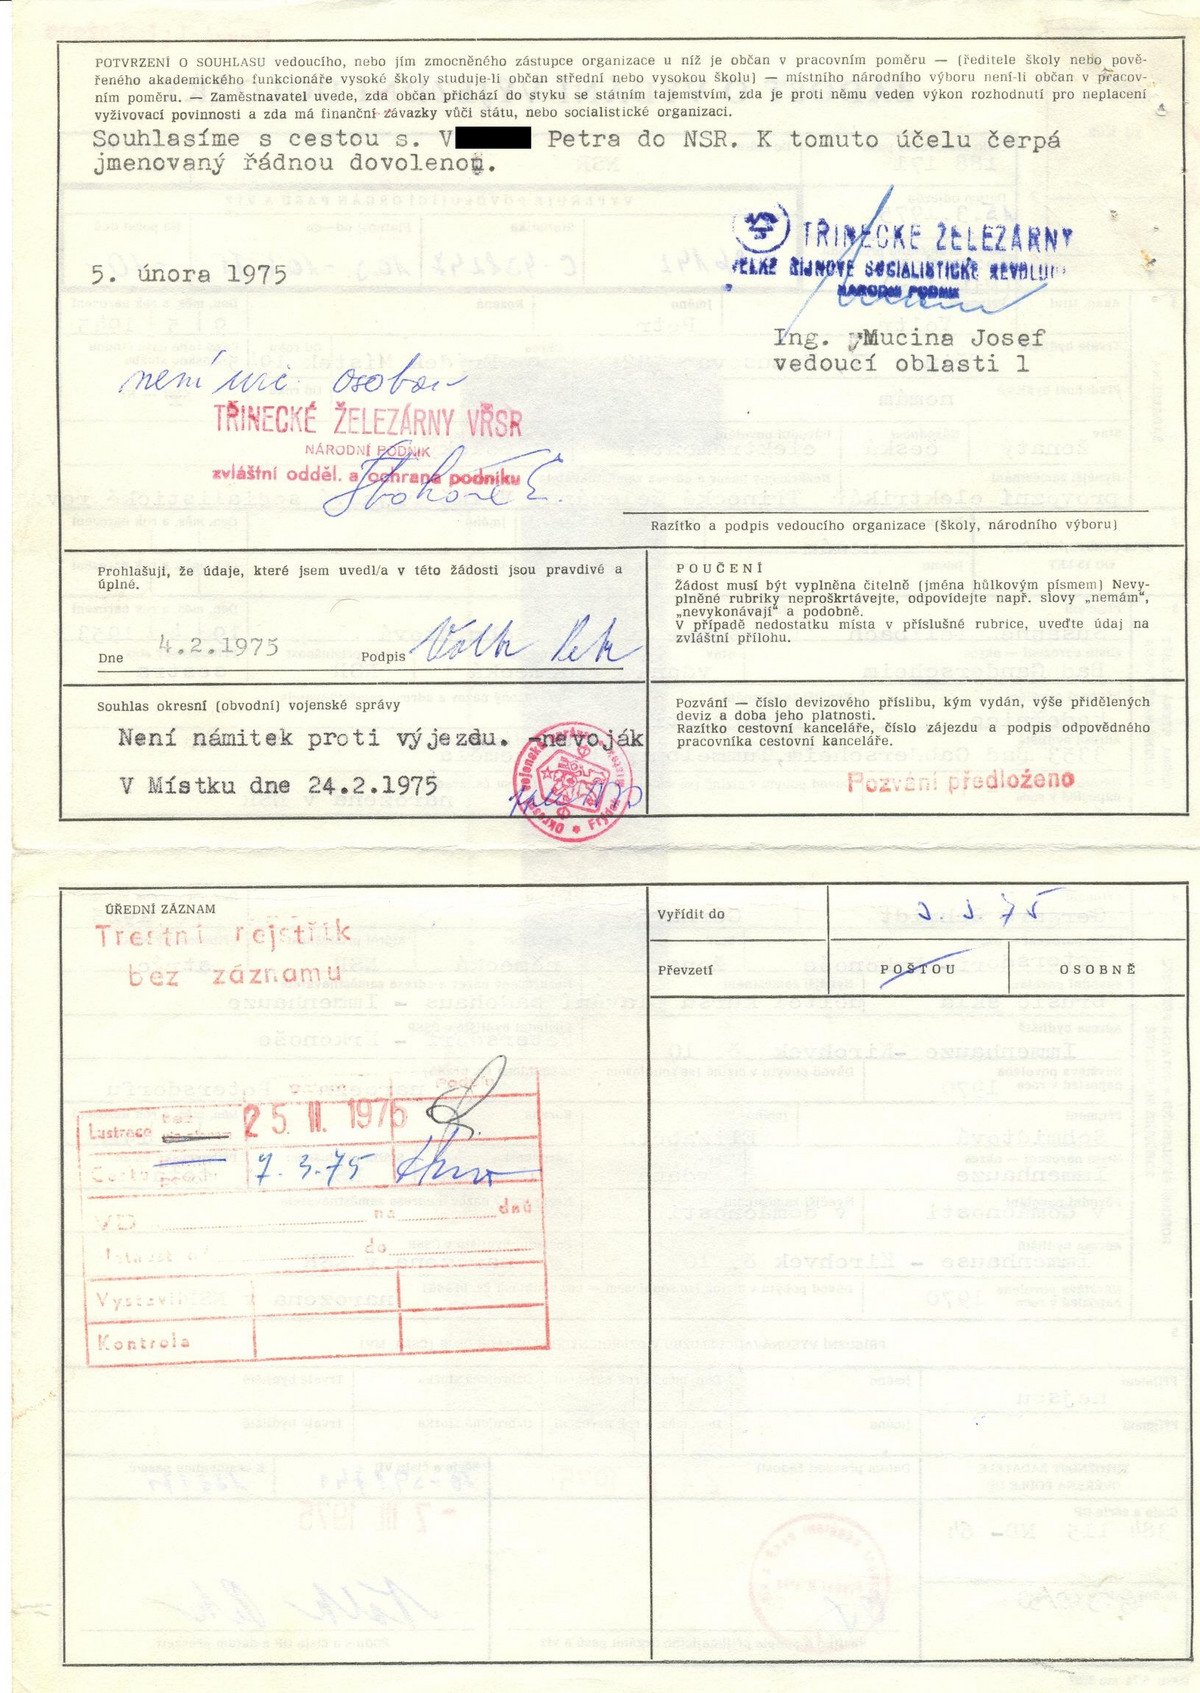 POTVRZENÍ O SOUHLASU vedoucího, nebo jím zmocněného zástupce organizace u níž je občan v pracovním poměru — (ředitele školy nebo pově-
řeného akademického funkcionáře vysoké školy studuje-li občan střední nebo vysokou školu) — místního národního výboru není-li občan v pracov-
ním poměru. — Zaměstnavatel uvede, zda občan přichází do styku se státním tajemstvím, zda je proti němu veden výkon rozhodnutí pro neplacení
vyživovací povinnosti a zda má finanční závazky vůči státu, nebo socialistické organizaci.
Souhlasíme s cestou s. V Petra do NSR. K tomuto účelu čerpá
jmenovaný řádnou dovolenou.
TŘINECKÉ ŽELEZÁRNY
VELKÉ ŘÍJNOVÉ SOCIALISTICKÉ REVOLUCE
NÁRODNÍ PODNIK
5. února 1975
Ing. Mucina Josef
vedoucí oblasti 1
není osobou
TŘINECKÉ ŽELEZÁRNY VŘSR
NÁRODNÍ PODNIK
zvláštní odděl. a ochrana podniku
Razítko a podpis vedoucího organizace (školy, národního výboru)
Prohlašuji, že údaje, které jsem uvedl/a v této žádosti jsou pravdivé a
úplné.
Dne 4.2.1975 Podpis Petr
POUČENÍ
Žádost musí být vyplněna čitelně (jména hůlkovým písmem) Nevy-
plněné rubriky neproškrtávejte, odpovídejte např. slovy „nemám“,
„nevykonávají“ a podobně.
V případě nedostatku místa v příslušné rubrice, uveďte údaj na
zvláštní přílohu.
Souhlas okresní (obvodní) vojenské správy
Není námitek proti výjezdu. -nevoják
V Místku dne 24.2.1975
Pozvání — číslo devizového příslibu, kým vydán, výše přidělených
deviz a doba jeho platnosti.
Razítko cestovní kanceláře, číslo zájezdu a podpis odpovědného
pracovníka cestovní kanceláře.
Pozvání předloženo
ÚŘEDNÍ ZÁZNAM
Trestní rejstřík
bez záznamu
Vyřídit do 3. 3 75
Převzetí POŠTOU OSOBNĚ
Lustrace bez 25. II. 1975
7. 3. 75
VD na dnů
do
Vystavil
Kontrola